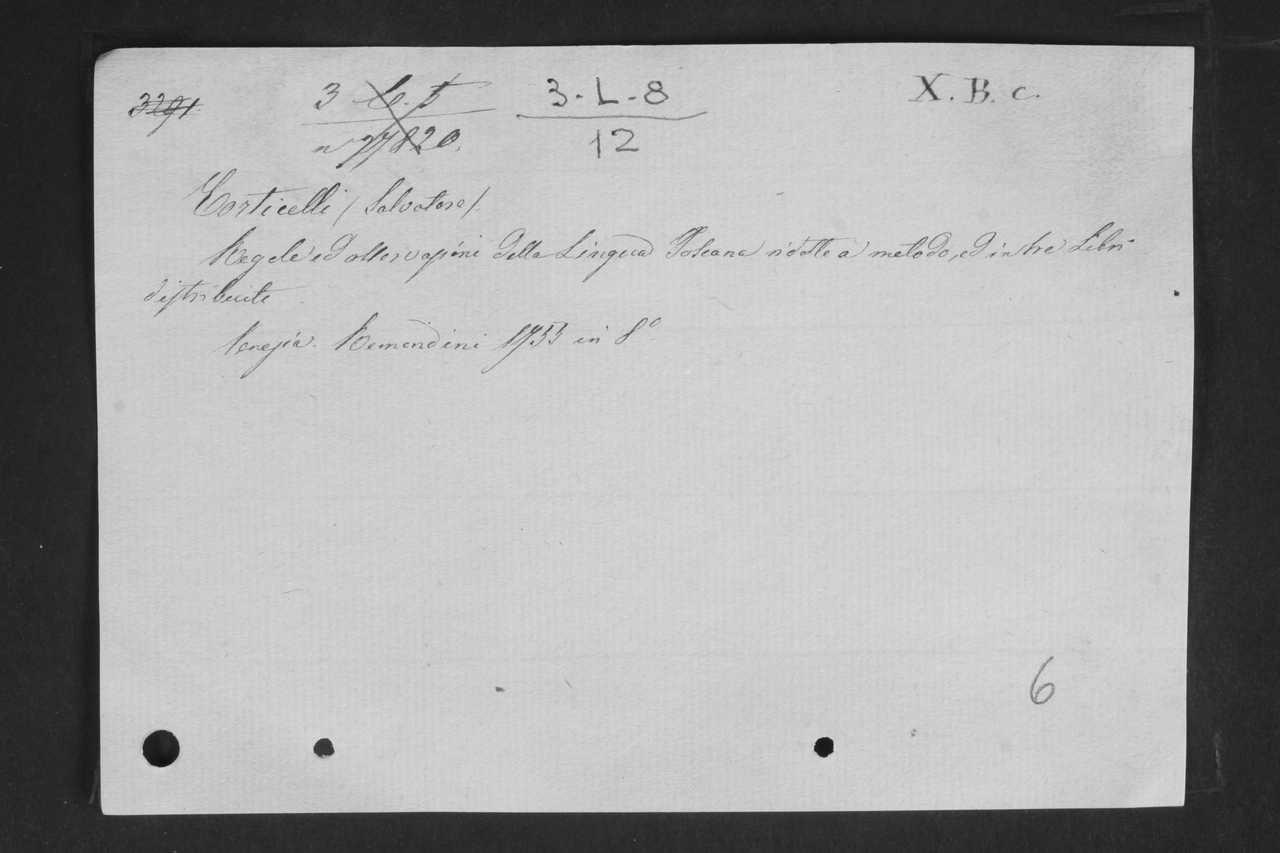 3291 3 3-L-8 X. B. c.
n° 27820. 12
Corticelli / Salvatore /.
Regole ed osservazioni della Lingua Toscana ridotte a metodo, ed in tre Libri
distribuite
Venezia. Remondini 1753 in 8°
6